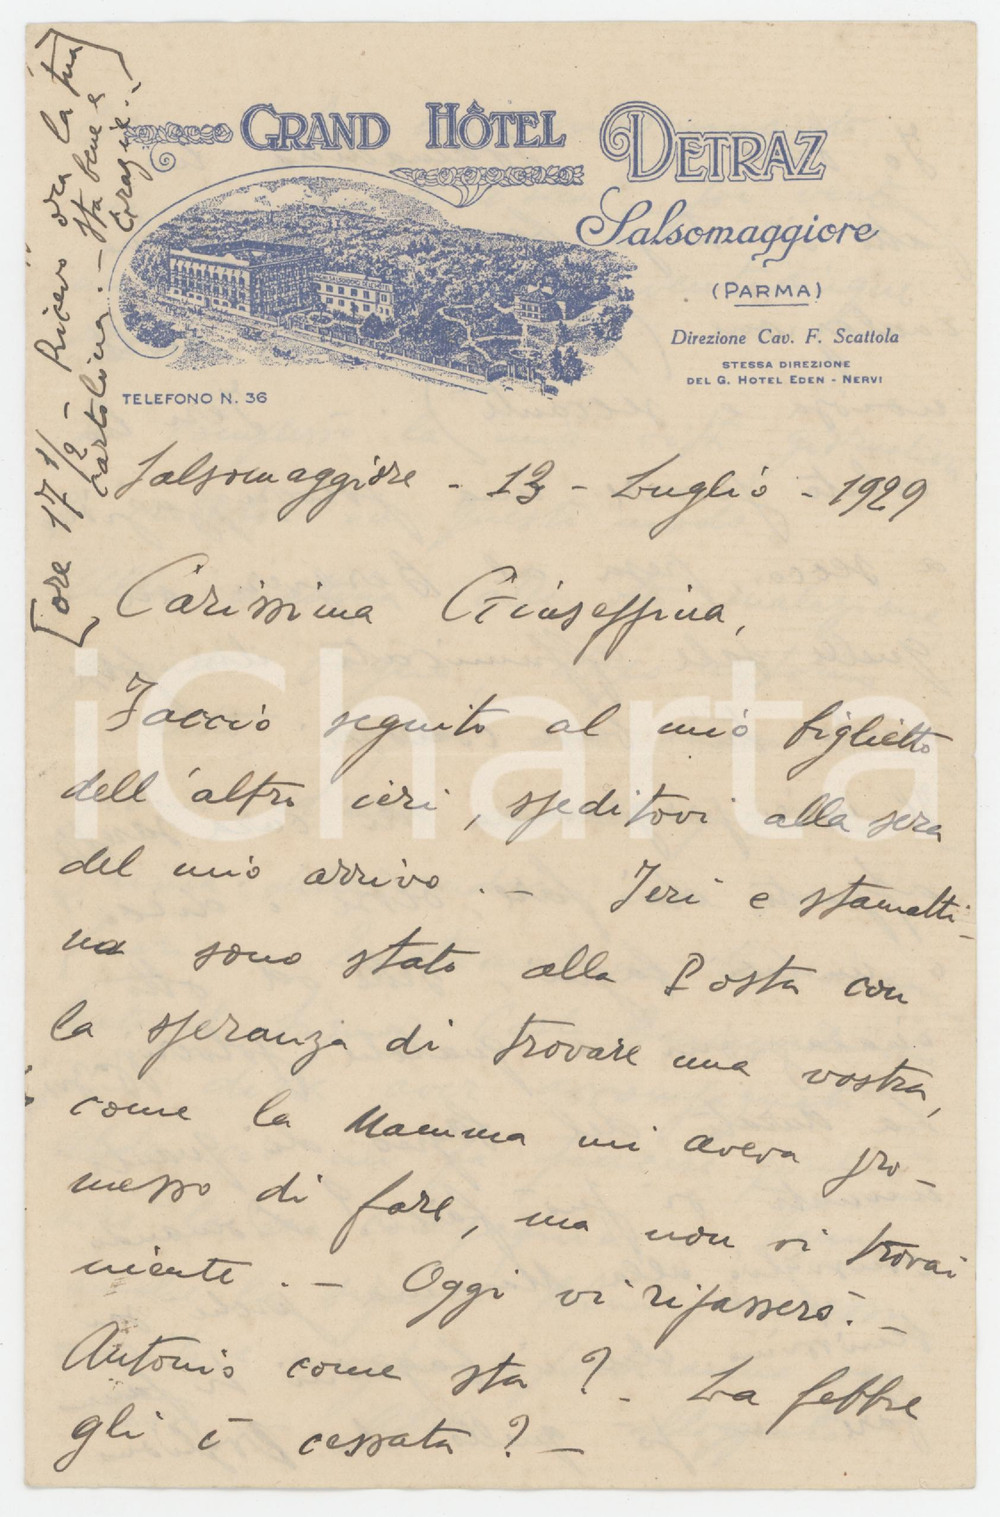 GRAND HÔTEL DETRAZ
Salsomaggiore
(PARMA)
Direzione Cav. F. Scattola
STESSA DIREZIONE
DEL G. HOTEL EDEN - NERVI
TELEFONO N. 36
[ore 17 1/2 - Ricevo ora la tua
cartolina. - sta bene e
grazie..]
Salsomaggiore - 13 - Luglio - 1929
Carissima Giuseppina,
Faccio seguito al mio biglietto
dell'altro ieri, speditovi alla sera
del mio arrivo. - Ieri e stamatti-
na sono stato alla Posta con
la speranza di trovare una vostra,
come la Mamma mi aveva pro-
messo di fare, ma non vi trovai
niente. - Oggi vi ripasserò. -
Antonio come sta? - La febbre
gli è cessata? -
iCharta